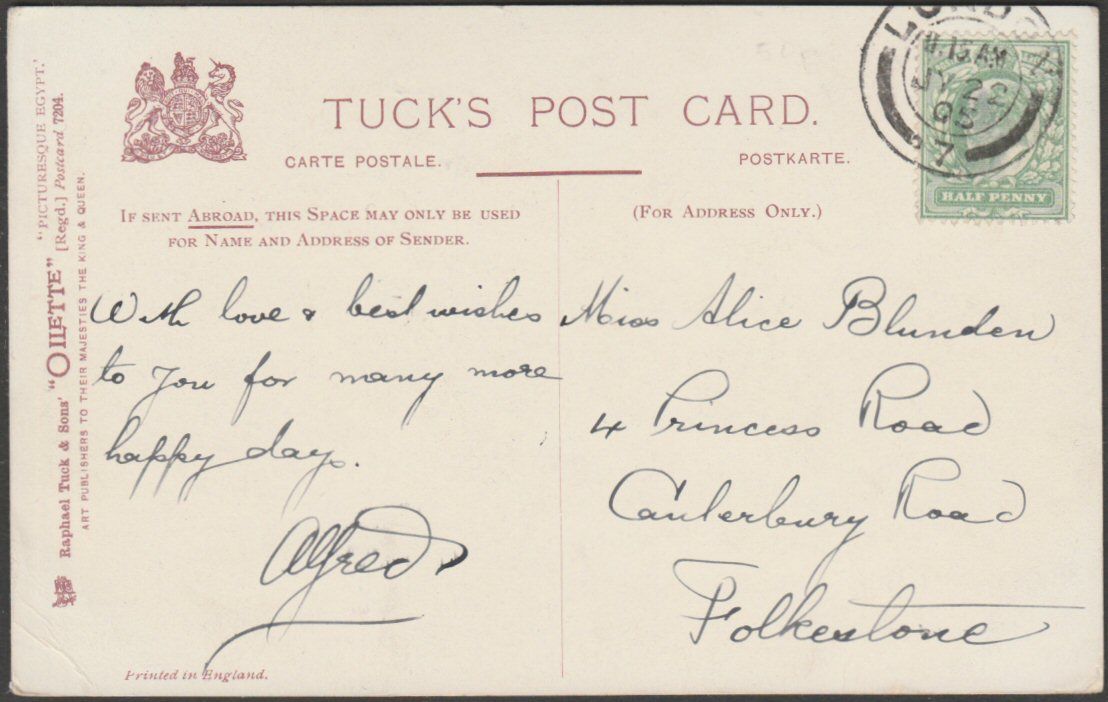 TUCK'S POST CARD.
CARTE POSTALE.
POSTKARTE.
IF SENT ABROAD, THIS SPACE MAY ONLY BE USED
FOR NAME AND ADDRESS OF SENDER.
(FOR ADDRESS ONLY.)
With love & best wishes
to you for many more
happy days.
Alfred
Miss Alice Blunden
4 Princess Road
Canterbury Road
Folkestone
HALF PENNY
"PICTURESQUE EGYPT."
Raphael Tuck & Sons' "OILETTE" [Regd.] Postcard 7204.
ART PUBLISHERS TO THEIR MAJESTIES THE KING & QUEEN.
Printed in England.
15 AM
22
7